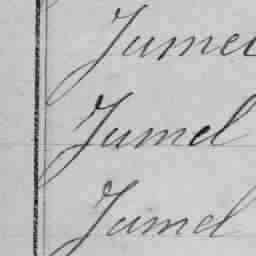 Jumel
Jumel
Jumel